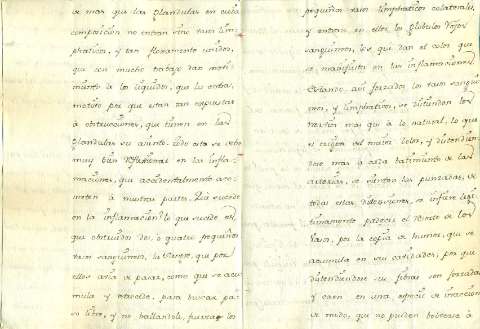 se mas que las Glandulas en cuia
composicion no entran sino vasos lim-
phativos, y tan flojamente unidos,
que con mucho trabajo dan movi-
miento à los liquidos, que los entra,
motivo por que estan tan expuestas
à obstrucciones, que tienen en las
Glandulas su asiento. Todo esto se debe
muy bien reflexionar en las infla-
maciones, que accidentalmente aco-
meten à nuestras partes. Qué sucede
en la inflamacion? lo que sucede es,
que obstruidos dos, o quatro pequeños
vasos sanguineos, la sangre, que por
ellos avia de pasar, como que se acu-
mula y retrocede, para buscar pa-
so libre, y no hallandole, fuerza los
pequeños vasos limphaticos colaterales,
y entran en ellos los globulos rojos
sanguineos, los que dan el color que
se manifiesta en las inflamaciones.
Estando, asi forzados los vasos sangui-
neos, y limphativos, se distienden los
mas que à lo natural, lo que
es origen del maior dolor, y distendien-
dose mas à cada batimiento de las
arterias, se sienten las punzadas, de
todas estas distensiones, se infiere legi-
timamente padecer el de los
vasos, por la copia de humor, que se
acumula en sus cavidades, por que
distendiendose su fibras son forzadas
y caen en una especie de inaccion
de modo, que no pueden bolverse à